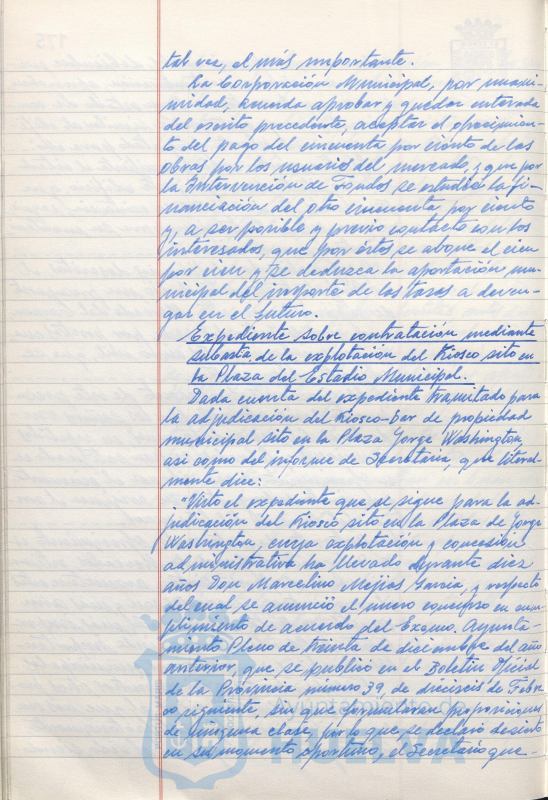 tal vez, el más importante.
La Corporación Municipal, por unani-
midad, acuerda aprobar y quedar enterada
del escrito precedente, aceptar el ofrecimien-
to del pago del cincuenta por ciento de las
obras por los usuarios del mercado, y que por
la Intervención de Fondos se estudie la fi-
nanciación del otro cincuenta por ciento
y, a ser posible y previo contacto con los
interesados, que por éstos se abone el cien
por cien y se deduzca la aportación mu-
nicipal del importe de las tasas a deven-
gar en el futuro.
Expediente sobre contratación mediante
subasta de la explotación del Kiosco sito en
la Plaza del Estadio Municipal.
Dada cuenta del expediente tramitado para
la adjudicación del Kiosco-Bar de propiedad
municipal sito en la Plaza Jorge Washington,
asi como del informe de Secretaría, que literal-
mente dice:
"Visto el expediente que se sigue para la ad-
judicación del Kiosco sito en la Plaza de Jorge
Washington, cuya explotación y concesión
administrativa ha llevado durante diez
años Don Marcelino Mejías García, y respecto
del cual se anunció el nuevo concurso en cum-
plimiento de acuerdo del Excmo. Ayunta-
miento Pleno de treinta de diciembre del año
anterior, que se publicó en el Boletín Oficial
de la Provincia número 39, de dieciseis de Febre-
ro siguiente, sin que formularan proposiciones
de ninguna clase, por lo que se declaró desierto
en su momento oportuno, el Secretario que-